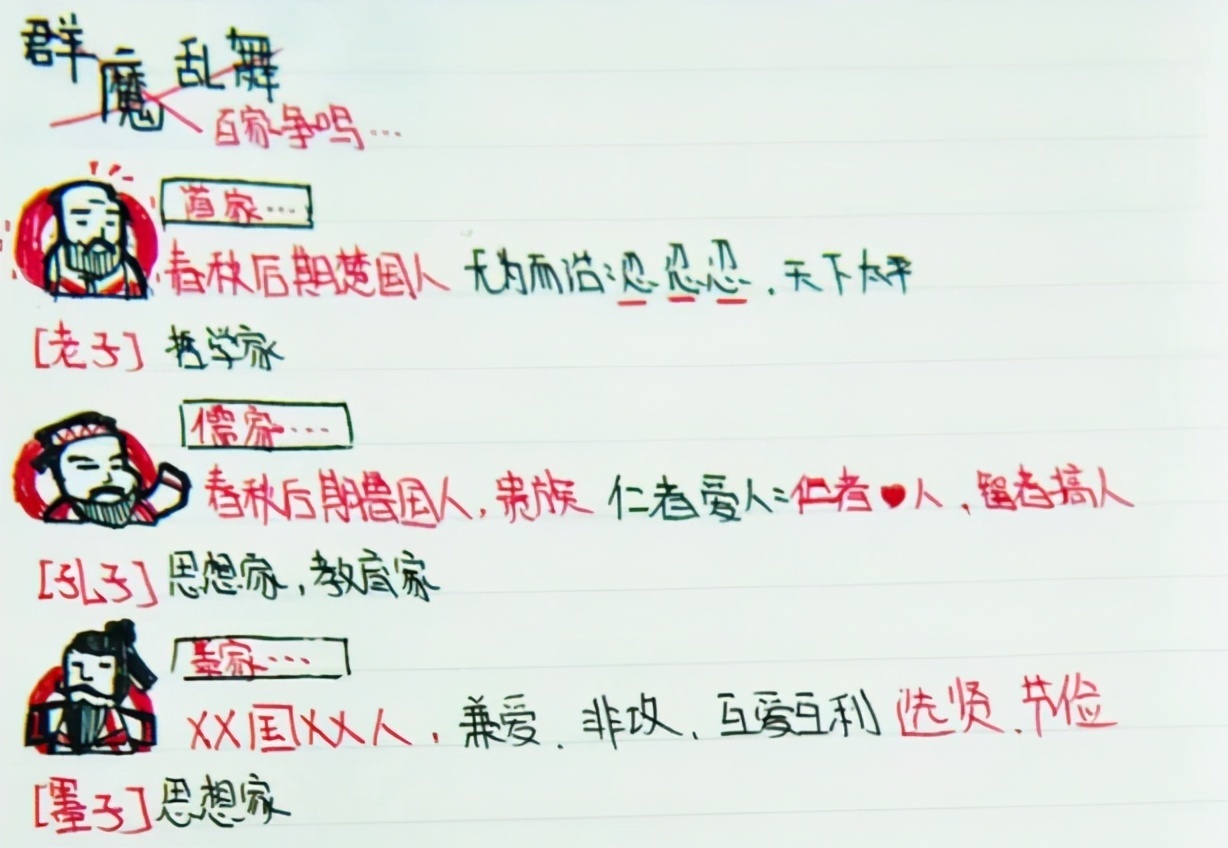 群魔乱舞
百家争鸣…
道家…
春秋后期楚国人 无为而治:忍忍忍,天下太平
[老子] 哲学家
儒家…
春秋后期鲁国人,贵族 仁者爱人:仁者♥人,智者搞人
[孔子] 思想家,教育家
墨家…
XX国XX人,兼爱、非攻、互爱互利 选贤、节俭
[墨子] 思想家